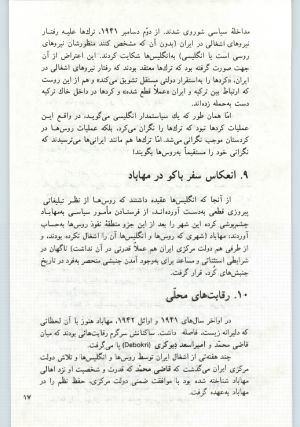 مداخلهٔ سیاسی شوروی شدند. از دوّم دسامبر ۱۹۴۱، ترک‌ها علیه رفتار
نیروهای اشغالی در ایران (بدون آن که مشخص کنند منظورشان نیروهای
روسی است یا انگلیسی) به‌انگلیسی‌ها شکایت کردند. این اعتراض از آن
جهت صورت گرفته بود که ترک‌ها معتقد بودند که رفتار نیروهای اشغالی در
ایران، «کردها را به‌استقرار دولتی مستقل تشویق می‌کند» و هم از این روست
که ارتباط بین ترکیه و ایران «عملاً قطع شده» و کردها در داخل خاک ترکیه
دست به‌حمله زده‌اند.
امّا همان طور که یک سیاستمدار انگلیسی می‌گوید، در واقع این
عملیات کردها نبود که ترک‌ها را نگران می‌کرد، بلکه عملیات روس‌ها در
کردستان موجب نگرانی می‌شد. امّا ترک‌ها هم مانند ایرانی‌ها می‌ترسیدند که
نگرانی خود را مستقیماً به‌روس‌ها بگویند!
۹. انعکاس سفر باکو در مهاباد
از آنجا که انگلیس‌ها عقیده داشتند که روس‌ها از نظر تبلیغاتی
پیروزی قطعی به‌دست آورده‌اند، از فرستادن مأمور سیاسی به‌مهاباد
چشم‌پوشی کرده این شهر را بعد از این جزو منطقهٔ نفوذ روس‌ها به‌حساب
آوردند: مهاباد (شهری که روس‌ها و انگلیس‌ها آن را اشغال نکرده بودند، و
از طرفی هم دولت مرکزی ایران هم عملاً قدرتی در آن نداشت) ناگهان در
شرایطی استثنائی و مساعد برای به‌وجود آمدن جنبشی منحصر به‌فرد در تاریخ
جنبش‌های کُرد، قرار گرفت.
۱۰. رقابت‌های محلّی
در اواخر سال‌های ۱۹۴۱ و اوائل ۱۹۴۲، مهاباد هنوز با آن لحظاتی
که دلیرانه زیست، فاصله داشت. ساکنانش سرگرم رقابت‌هائی بودند که میان
قاضی محمّد و امیراسعد دبوکری (Debokri) پا می‌گرفت.
چند هفته‌ئی از اشغال ایران توسط روس‌ها و انگلیس‌ها و تلاشی دولت
مرکزی می‌گذشت که قاضی محمّد که قدرت و شخصیت او نزد اهالی
مهاباد شناخته شده بود با موافقت ضمنی دولت مرکزی، حفظ نظم را در
مهاباد به‌عهده گرفت.
۱۷